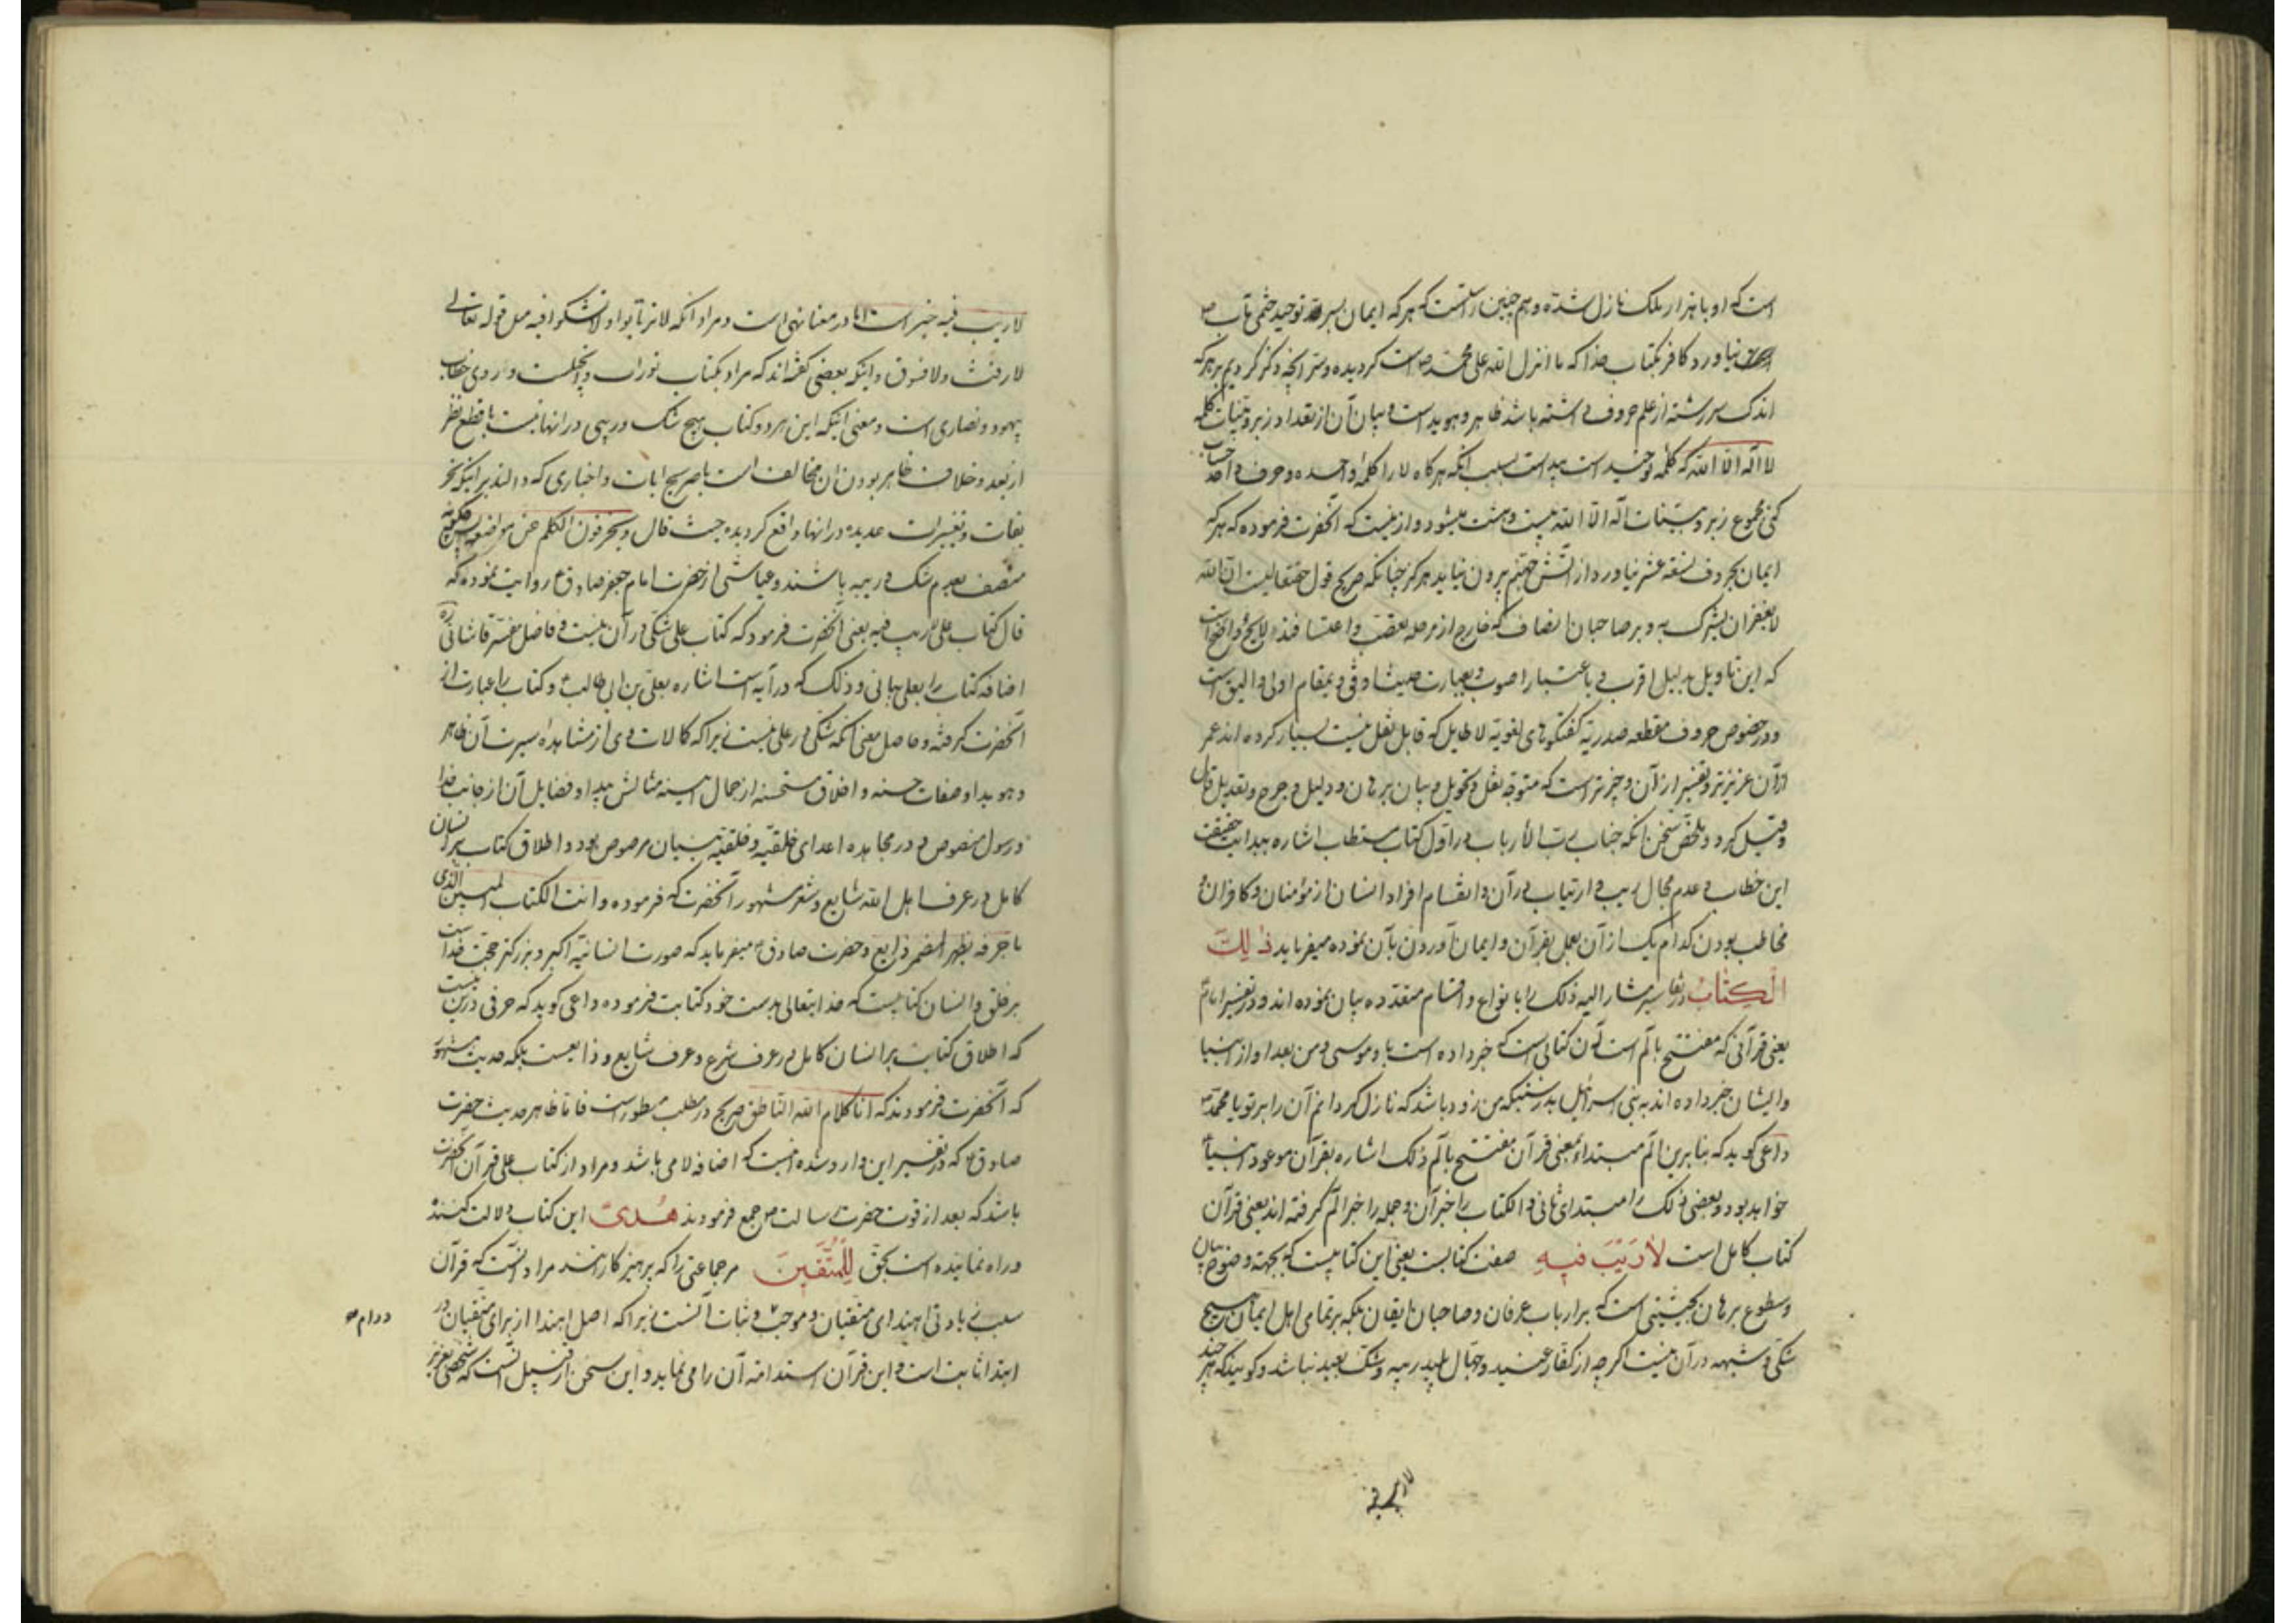 است که او با هزار ملک نازل شده و هم چنین راستست که هر که ایمان بسر توحید ختمی مآب ص
نیاورد کافر بکتاب خدا که ما انزل الله علی محمد ص است گردیده و سر آنچه ذکر کردیم بر هر که
اندک سررشته از علم حروف داشته باشد ظاهر و هویداست و بیان آن از تعداد زبر و بینات کلمه
لا اله الا الله که کلمه توحید است پیداست بسبب آنکه هرگاه لا را کلمه واحده و حرف واحد حساب
کنی مجموع زبر و بینات اله الا الله بیست و هشت میشود و ازینست که آنحضرت فرموده که هر که
ایمان بحروف تسعه عشر نیاورد از آتش جهنم بیرون نیاید هرگز چنانکه صریح قول حقتعالیست ان الله
لا یغفر ان یشرک به و بر صاحبان انصاف که خارج از مرحله تعصب و اعتساف‌اند لایح و واضح است
که این تاویل بدلیل اقرب و باعتبار اصوب و بعبارت اوفی و بمقام اولی و الیق است
و در خصوص حروف مقطعه صدریه گفتگوهای لغویه لاطایل که قابل نقل نیست بسیار کرده اند عمر
از آن عزیزتر و تفسیر از آن وجیزتر است که متوجه نقل و تحویل و بیان برهان و دلیل و جرح و تعدیل قال
و قیل گردد و ملخص سخن آنکه جناب رب الارباب در اول کتاب مستطاب اشاره بهدایت حقیقت
این خطاب و عدم مجال ریب و ارتیاب در آن و انقسام افراد انسان از مؤمنان و کافران و
مخاطب بودن کدام یک از آن بعمل بقرآن و ایمان آوردن بآن نموده میفرماید ذٰلِكَ
الْكِتَابُ در تفاسیر مشار الیه ذلک را بانواع و اقسام متعدده بیان نموده اند و در تفسیر امام ع
یعنی قرآنی که مفتتح بالم است آن کتابی است که خبر داده است باو موسی و من بعد او از انبیا
و ایشان خبر داده اند به بنی اسرائیل بدرستیکه من زود باشد که نازل گردانم آن را بر تو یا محمد ص
داعی گوید که بنابرین الم مبتدا بمعنی قرآن مفتتح بالم ذلک اشاره بقرآن موعود انبیا
خواهد بود و بعضی ذلک را مبتدای ثانی و الکتاب را خبر آن و جمله را خبر الم گرفته اند یعنی قرآن
کتاب کامل است لَا رَيْبَ فِيهِ صفت کتابست یعنی این کتابیست که بجهة وضوح بیان
و سطوع برهان بحیثیتی است که بر ارباب عرفان و صاحبان ایقان بلکه بر تمامی اهل ایمان هیچ
شکی و شبهه در آن نیست اگر چه از کفار عنید و جهال پلید ریبه و شک بعید نباشد و گویند که هر چند
لاریب فیه
لاریب فیه خبر است اما در معنا نهی است و مراد آنکه لا ترتابوا و لا تشکوا فیه مثل قوله تعالی
لا رفث و لا فسوق و اینکه بعضی گفته اند که مراد بکتاب تورات و انجیلست و روی خطاب
یهود و نصاری است و معنی اینکه این هر دو کتاب هیچ شک و ریبی در آنها نیست با قطع نظر
از بعد و خلاف ظاهر بودن آن مخالف است با صریح آیات و اخباری که دالند بر اینکه تحر
یفات و تغییرات عدیده در آنها واقع گردیده حیث قال و یحرفون الکلم عن مواضعه پس چگونه
متصف بعدم شک و ریبه باشند و عیاشی از حضرت امام جعفر صادق ع روایت نموده که
قال کتاب علی لا ریب فیه یعنی آنحضرت فرمود که کتاب علی شکی در آن نیست و فاضل مفسر قاشانی ره
اضافه کتاب را بعلی بیانی و ذلک که در آیه است اشاره بعلی بن ابی طالب ع و کتاب را عبارت از
آنحضرت گرفته و حاصل معنی آنکه شکی در علی نیست زیرا که کمالات وی از مشاهده سیرت آن ظاهر
و هویدا و صفات حسنه و اخلاق مستحسنه از جمال آیینه مثالش پیدا و فضایل آن از جانب خدا
و رسول منصوص و در مجاهده اعدای خلقیه و خلقیه بنیان مرصوص بود و اطلاق کتاب بر انسان
کامل در عرف اهل الله شایع و شعر مشهور آنحضرت که فرموده و انت الکتاب المبین الذی
باحرفه یظهر المضمر ذایع و حضرت صادق ع میفرماید که صورت انسانیه اکبر و بزرگتر حجت خداست
بر خلق و انسان کتابیست که خدایتعالی بدست خود کتابت فرموده داعی گوید که حرفی درین نیست
که اطلاق کتاب بر انسان کامل در عرف شرع و عرف شایع و ذایعست بلکه حدیث مشهور
که آنحضرت فرمودند که انا کلام الله الناطق صریح در مطلب مسطور است فاما ظاهر حدیث حضرت
صادق ع که در تفسیر این وارد شده اینست که اضافه لامی باشد و مراد از کتاب علی قرآن آنحضرت
باشد که بعد از فوت حضرت رسالت ص جمع فرمودند هُدىً این کتاب دلالت کننده
و راه نماینده است بحق لِلْمُتَّقِينَ مر جماعتی را که پرهیزکارانند مراد آنست که قرآن
سبب زیادتی اهتدای متقیان و موجب ثبات آنست زیرا که اصل اهتدا از برای متقیان در
ابتدا ثابت است و این قرآن استدامه آن را می نماید و این سخن از قبیل آنست که شخصی بعزیز
دوام